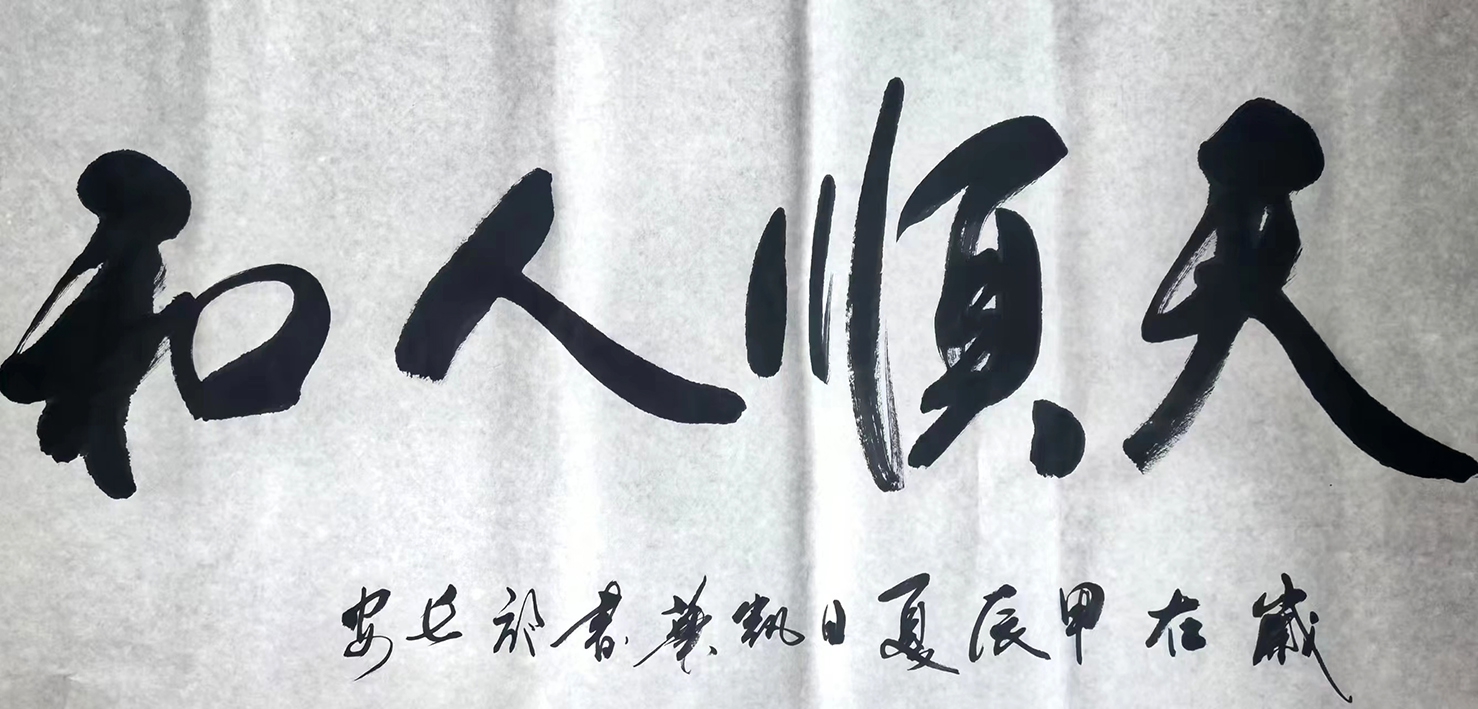 天順人和
歲在甲辰夏日凱華書於丘安